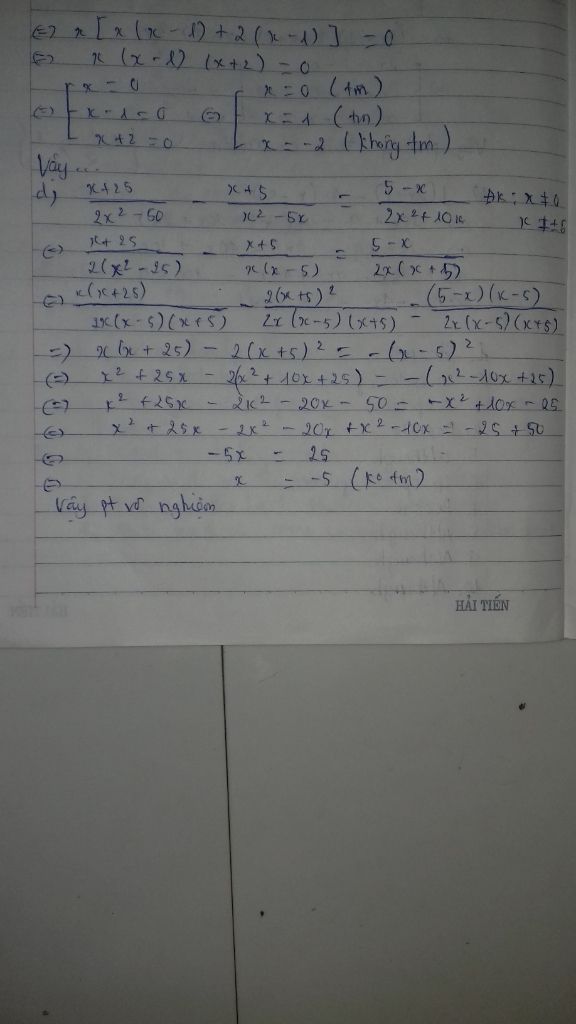 ⇔ x [ x (x - 1) + 2 (x - 1) ] = 0
⇔ x (x - 1) (x + 2) = 0
⇔ [ x = 0 ; x - 1 = 0 ; x + 2 = 0 ⇔ [ x = 0 (tm) ; x = 1 (tm) ; x = -2 (không tm)
Vậy...
d, (x + 25)/(2x² - 50) - (x + 5)/(x² - 5x) = (5 - x)/(2x² + 10x) ĐK : x ≠ 0
x ≠ ±5
⇔ (x + 25)/(2(x² - 25)) - (x + 5)/(x(x - 5)) = (5 - x)/(2x(x + 5))
⇔ x(x + 25)/(2x(x - 5)(x + 5)) - 2(x + 5)²/(2x(x - 5)(x + 5)) = (5 - x)(x - 5)/(2x(x - 5)(x + 5))
⇒ x(x + 25) - 2(x + 5)² = -(x - 5)²
⇔ x² + 25x - 2(x² + 10x + 25) = -(x² - 10x + 25)
⇔ x² + 25x - 2x² - 20x - 50 = -x² + 10x - 25
⇔ x² + 25x - 2x² - 20x + x² - 10x = -25 + 50
⇔ -5x = 25
⇔ x = -5 (ko tm)
Vậy pt vô nghiệm
HẢI TIẾN